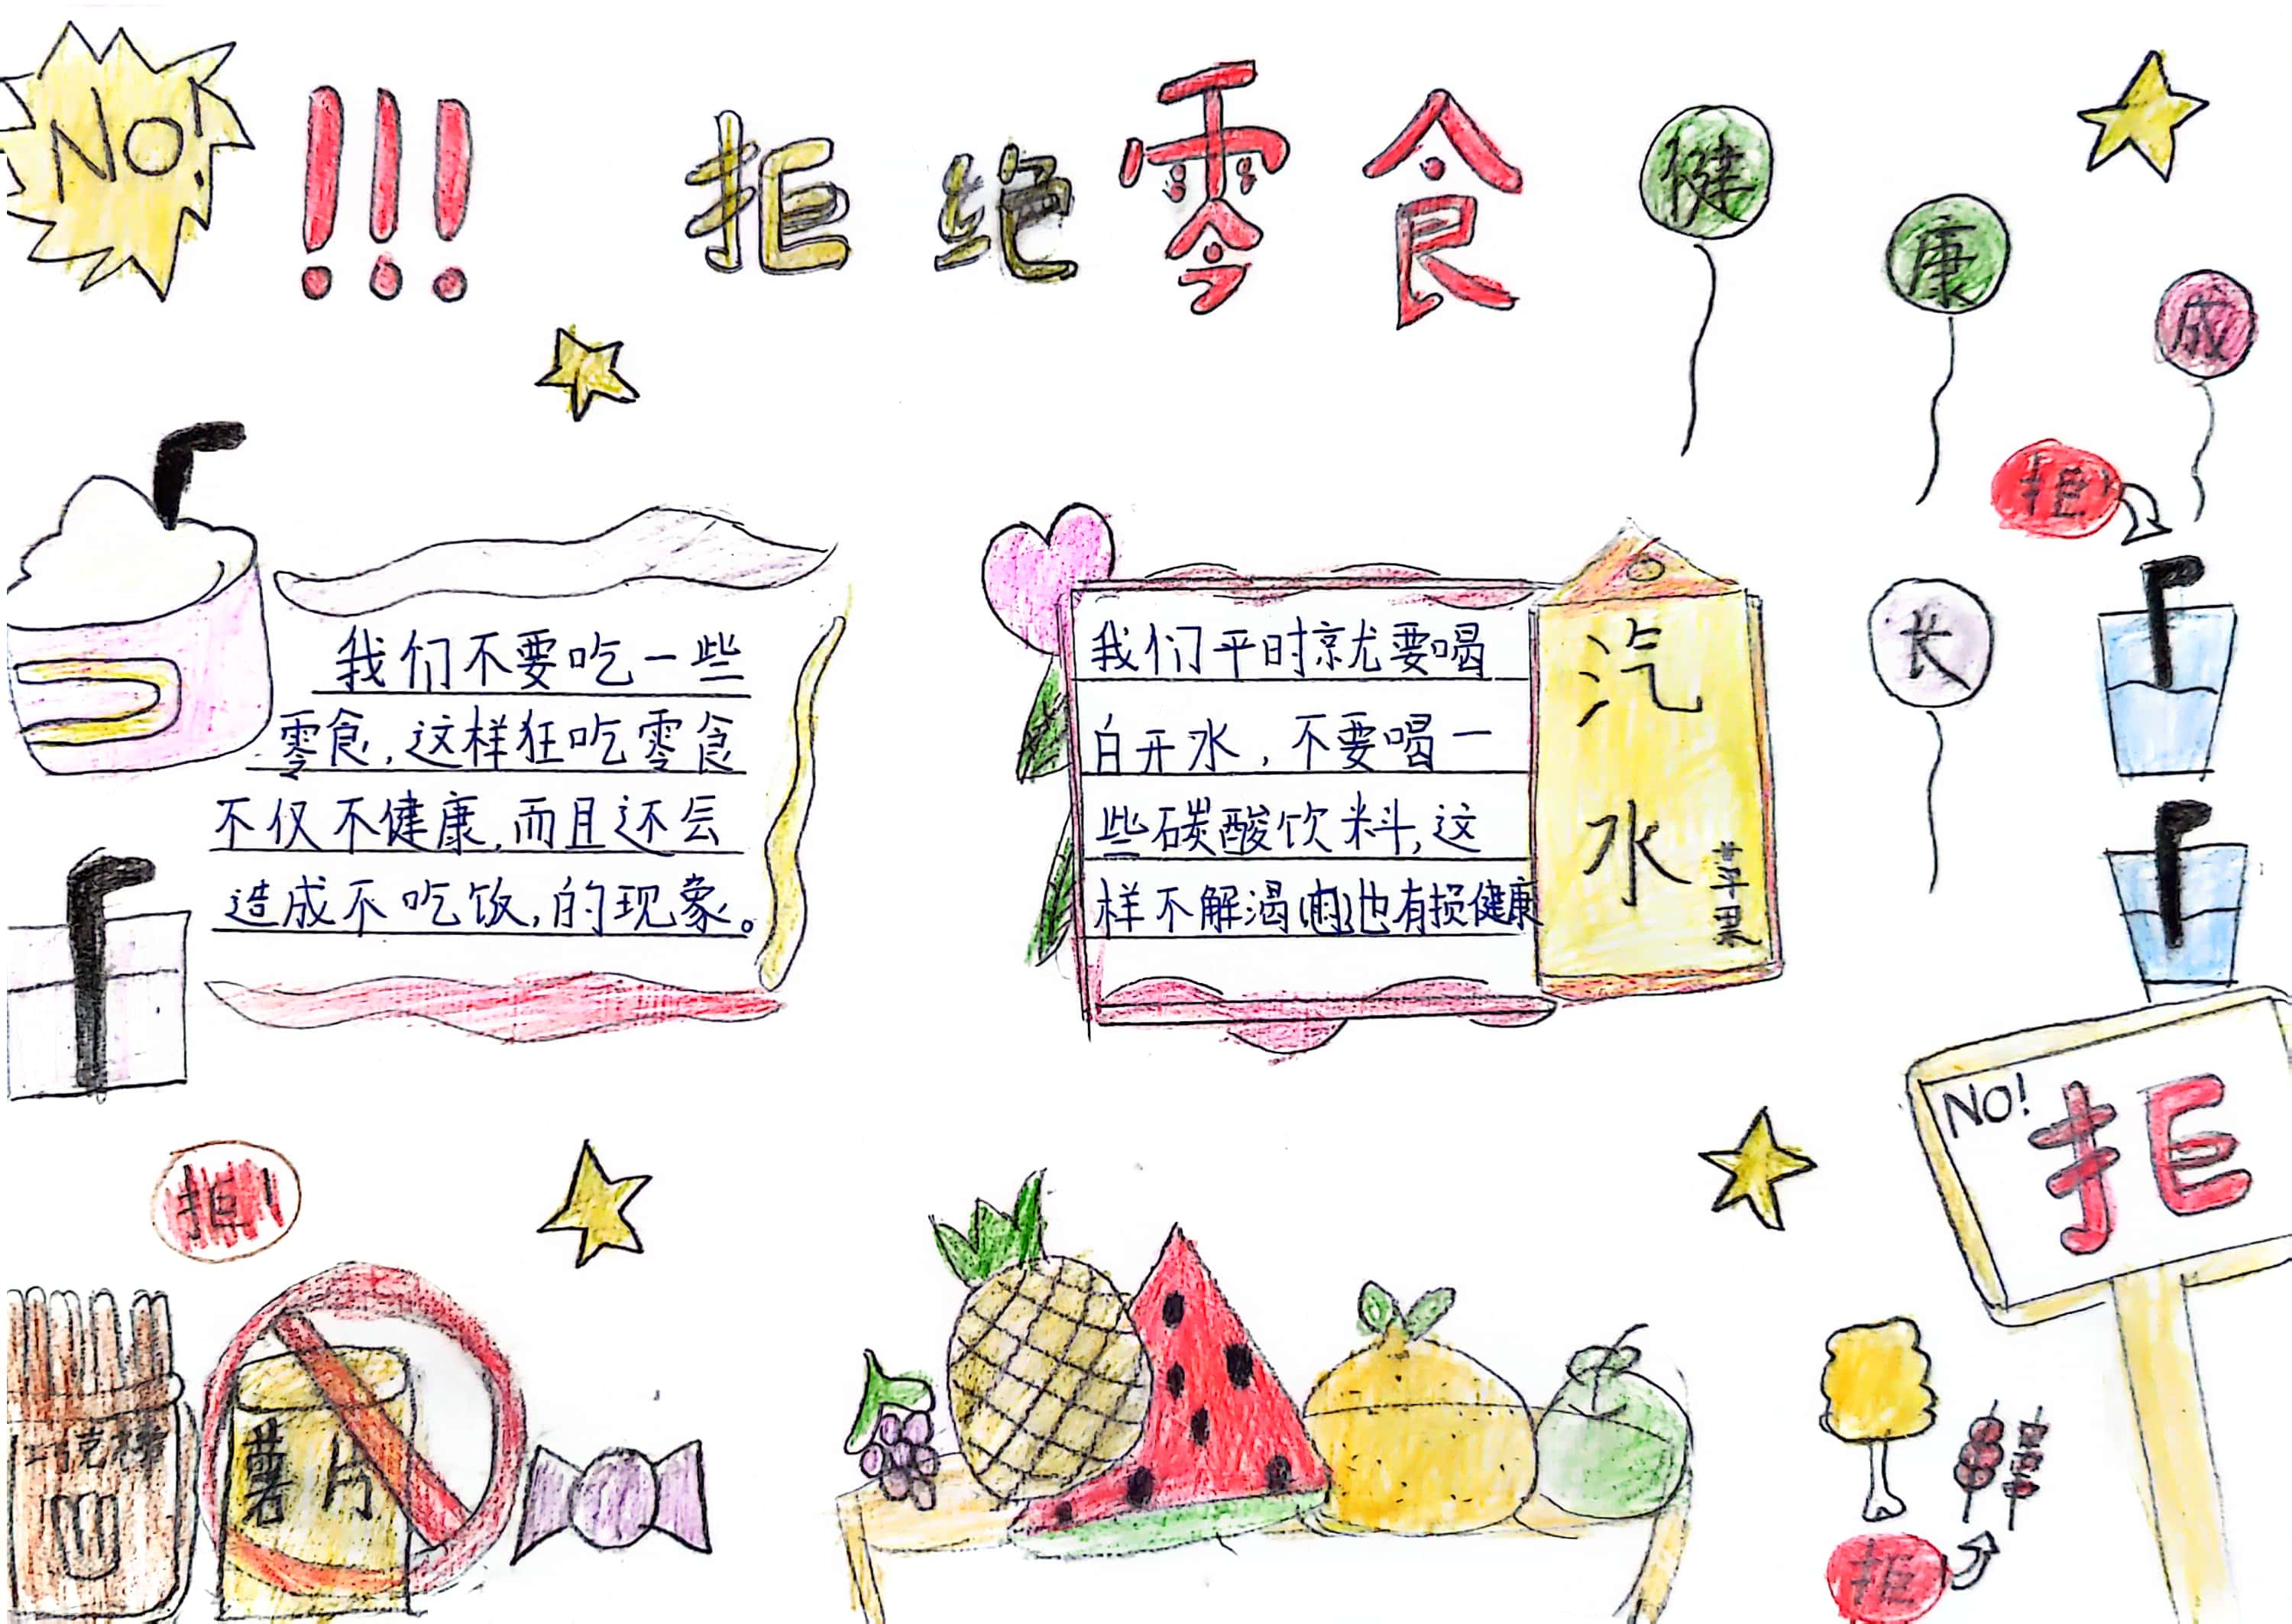 NO!
!!!
拒绝零食
健
康
成
长
拒
我们不要吃一些
零食，这样狂吃零食
不仅不健康，而且还会
造成不吃饭，的现象。
我们平时就要喝
白开水，不要喝一
些碳酸饮料，这
样不解渴，也有损健康
汽
水
苹果
NO!
拒
拒!
薯片
拒